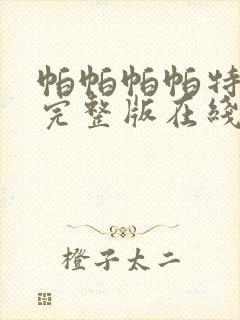 帕帕帕帕特
完整版在綫
橙子太二